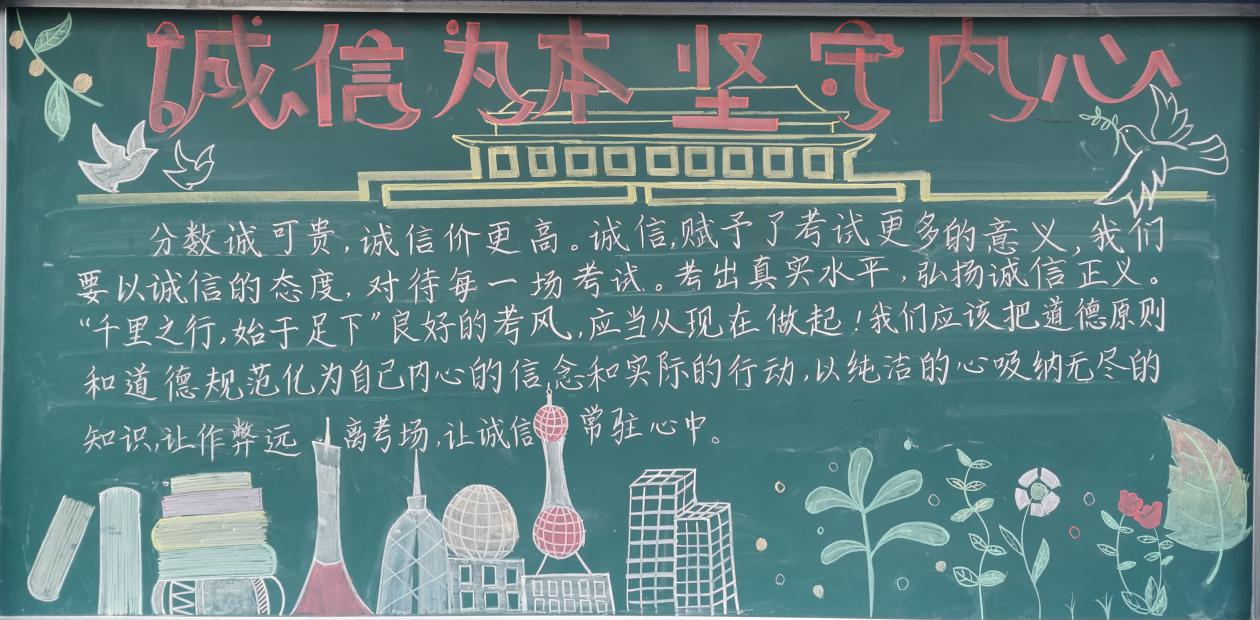 誠信为本 坚守内心
分数诚可贵,诚信价更高。诚信,赋予了考试更多的意义,我们
要以诚信的态度,对待每一场考试。考出真实水平,弘扬诚信正义。
“千里之行,始于足下”良好的考风,应当从现在做起!我们应该把道德原则
和道德规范化为自己内心的信念和实际的行动,以纯洁的心吸纳无尽的
知识,让作弊远离考场,让诚信常驻心中。